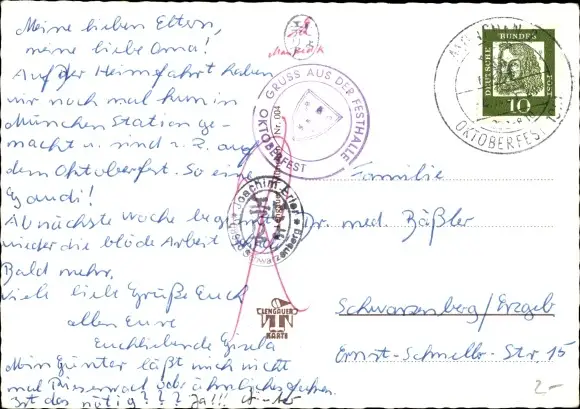 Meine lieben Eltern,
meine liebe Oma!
Auf der Heimfahrt haben
wir noch mal kurz in
München Station ge-
macht u. sind z. Z. auf
dem Oktoberfest. So eine
Gaudi!
Ab nächste Woche beginnt
wieder die blöde Arbeit
Bald mehr.
Viele liebe Grüße Euch
allen Eure
Euchliebende Gisela
Mein Günter läßt mich nicht
mal Riesenrad oder ähnliches fahren.
Ist das nötig??? Ja!!!
GRUSS AUS DER FESTHALLE
OKTOBERFEST
Nr. 004
Joachim Erler
Schwarzenberg
LENGAUER
KARTE
DEUTSCHE BUNDESPOST
10
MÜNCHEN
OKTOBERFEST
Familie
Dr. med. Bäßler
Schwarzenberg/Erzgeb
Ernst-Schneller-Str. 15
2.-